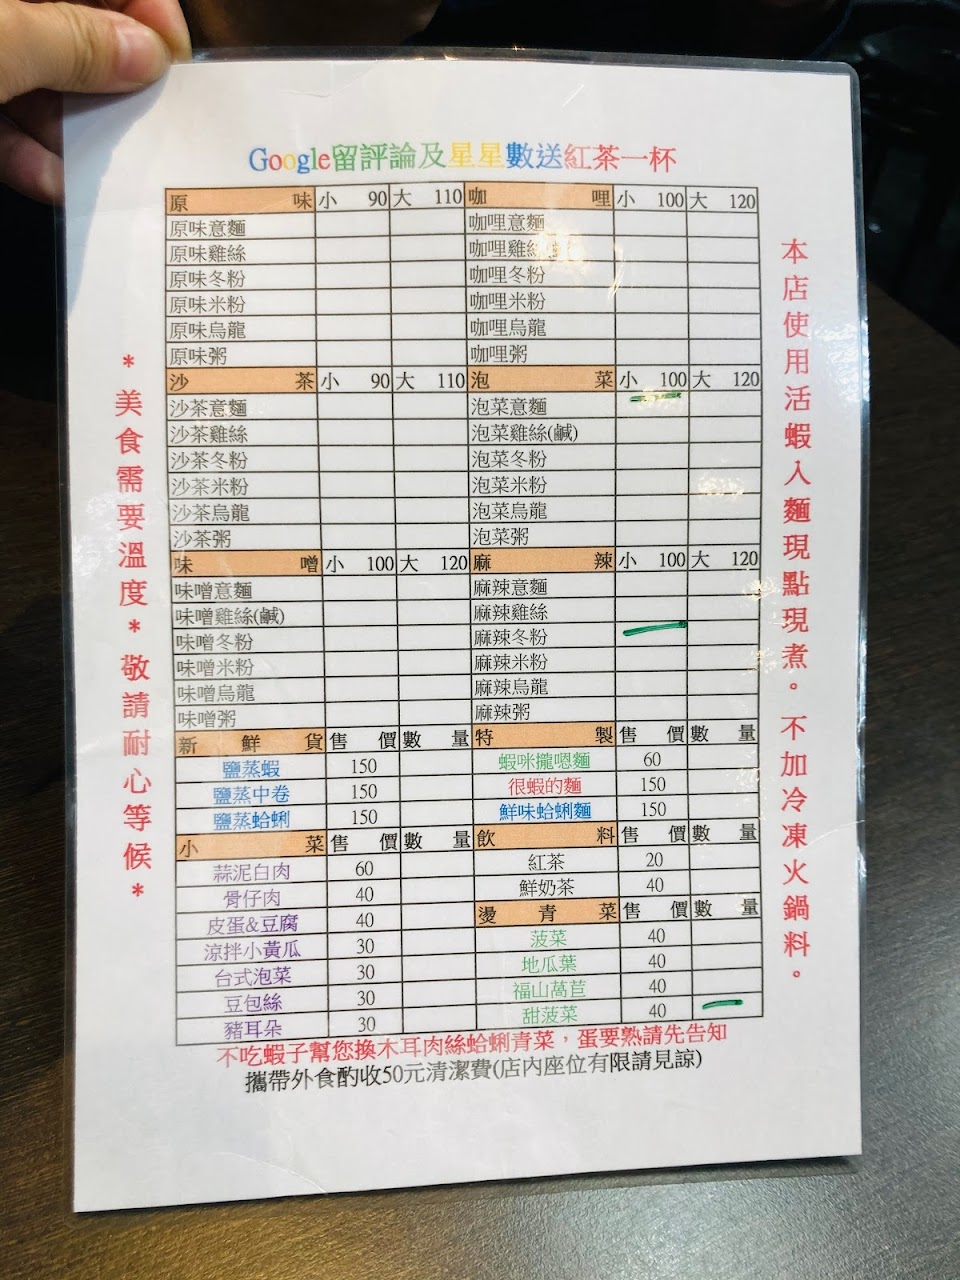 Google留評論及星星數送紅茶一杯
原味 小 90 大 110 咖哩 小 100 大 120
原味意麵 咖哩意麵
原味雞絲 咖哩雞絲
原味冬粉 咖哩冬粉
原味米粉 咖哩米粉
原味烏龍 咖哩烏龍
原味粥 咖哩粥
沙茶 小 90 大 110 泡菜 小 100 大 120
沙茶意麵 泡菜意麵
沙茶雞絲 泡菜雞絲(鹹)
沙茶冬粉 泡菜冬粉
沙茶米粉 泡菜米粉
沙茶烏龍 泡菜烏龍
沙茶粥 泡菜粥
味噌 小 100 大 120 麻辣 小 100 大 120
味噌意麵 麻辣意麵
味噌雞絲(鹹) 麻辣雞絲
味噌冬粉 麻辣冬粉
味噌米粉 麻辣米粉
味噌烏龍 麻辣烏龍
味噌粥 麻辣粥
新鮮貨 售價 數量 特製 售價 數量
鹽蒸蝦 150 蝦咪攏嗯麵 60
鹽蒸中卷 150 很蝦的麵 150
鹽蒸蛤蜊 150 鮮味蛤蜊麵 150
小菜 售價 數量 飲料 售價 數量
蒜泥白肉 60 紅茶 20
骨仔肉 40 鮮奶茶 40
皮蛋&豆腐 40 燙青菜 售價 數量
涼拌小黃瓜 30 菠菜 40
台式泡菜 30 地瓜葉 40
豆包絲 30 福山萵苣 40
豬耳朵 30 甜菠菜 40
不吃蝦子幫您換木耳肉絲蛤蜊青菜，蛋要熟請先告知
攜帶外食酌收50元清潔費(店內座位有限請見諒)
*美食需要溫度*敬請耐心等候*
本店使用活蝦入麵現點現煮。不加冷凍火鍋料。